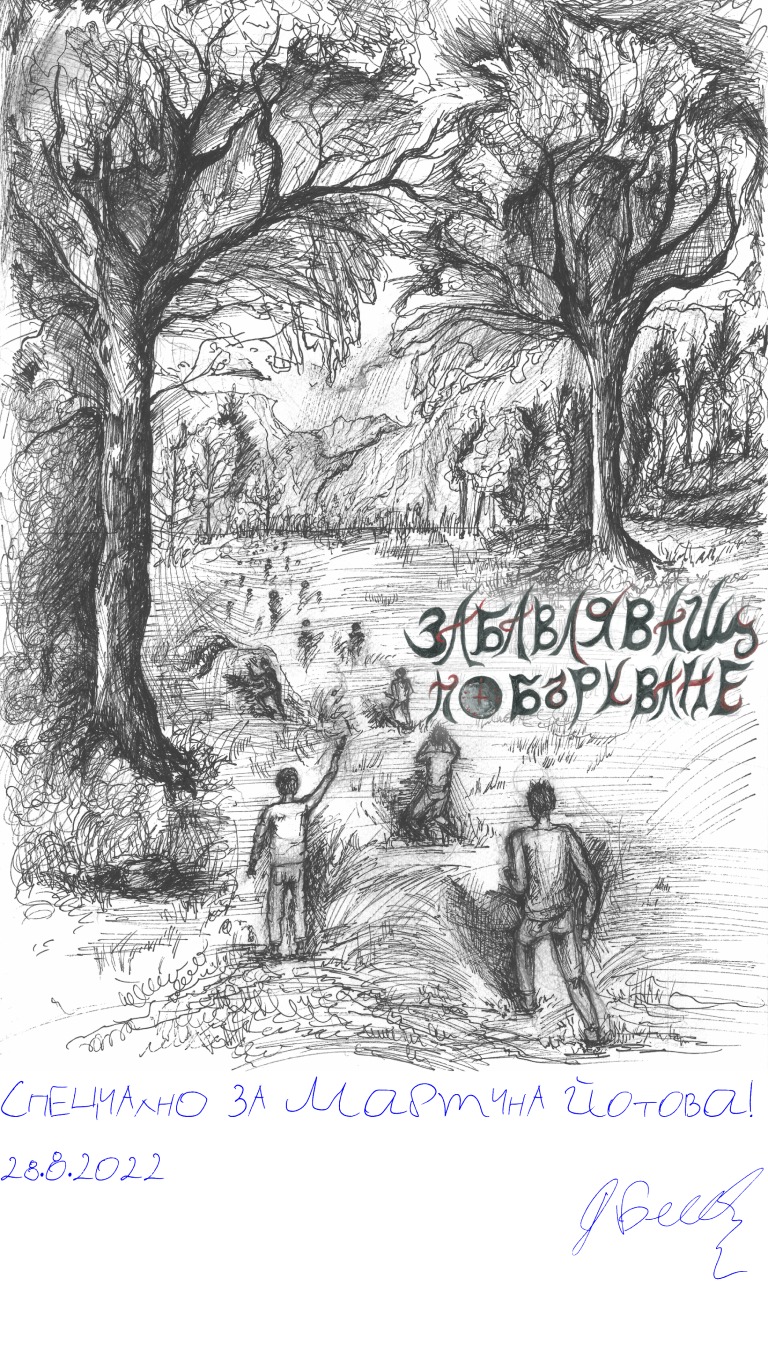 ЗАБАВЛЯВАЩ
ПОБЪРКВАНЕ
Специално за Мартина Йотова!
28.8.2022